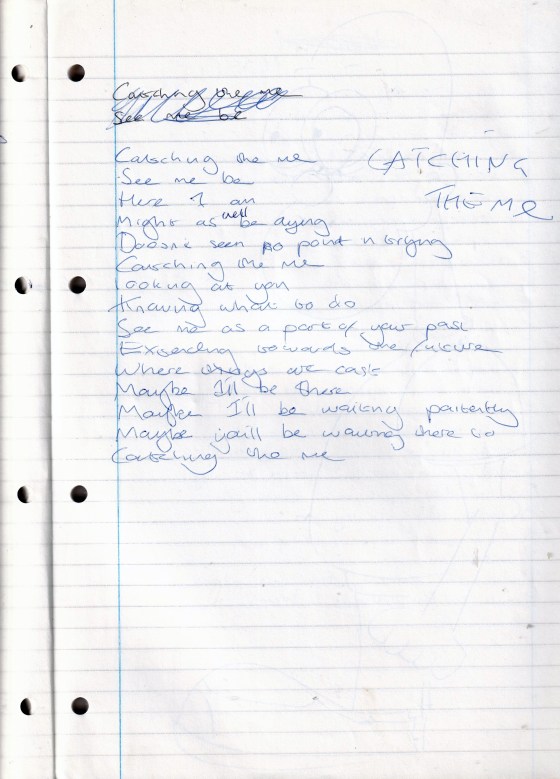 Catsching the me
See me be
Catsching the me
CATCHING
THE ME
See me be
Here I am
Might as well be dying
Doesn't seen no point n trying
Catsching the me
Looking at you
Knowing what to do
See me as a part of your past
Extending towards the future
Where are cast
Maybe I'll be there
Maybe I'll be waiting paitently
Maybe you'll be waiting there to
Catching the me